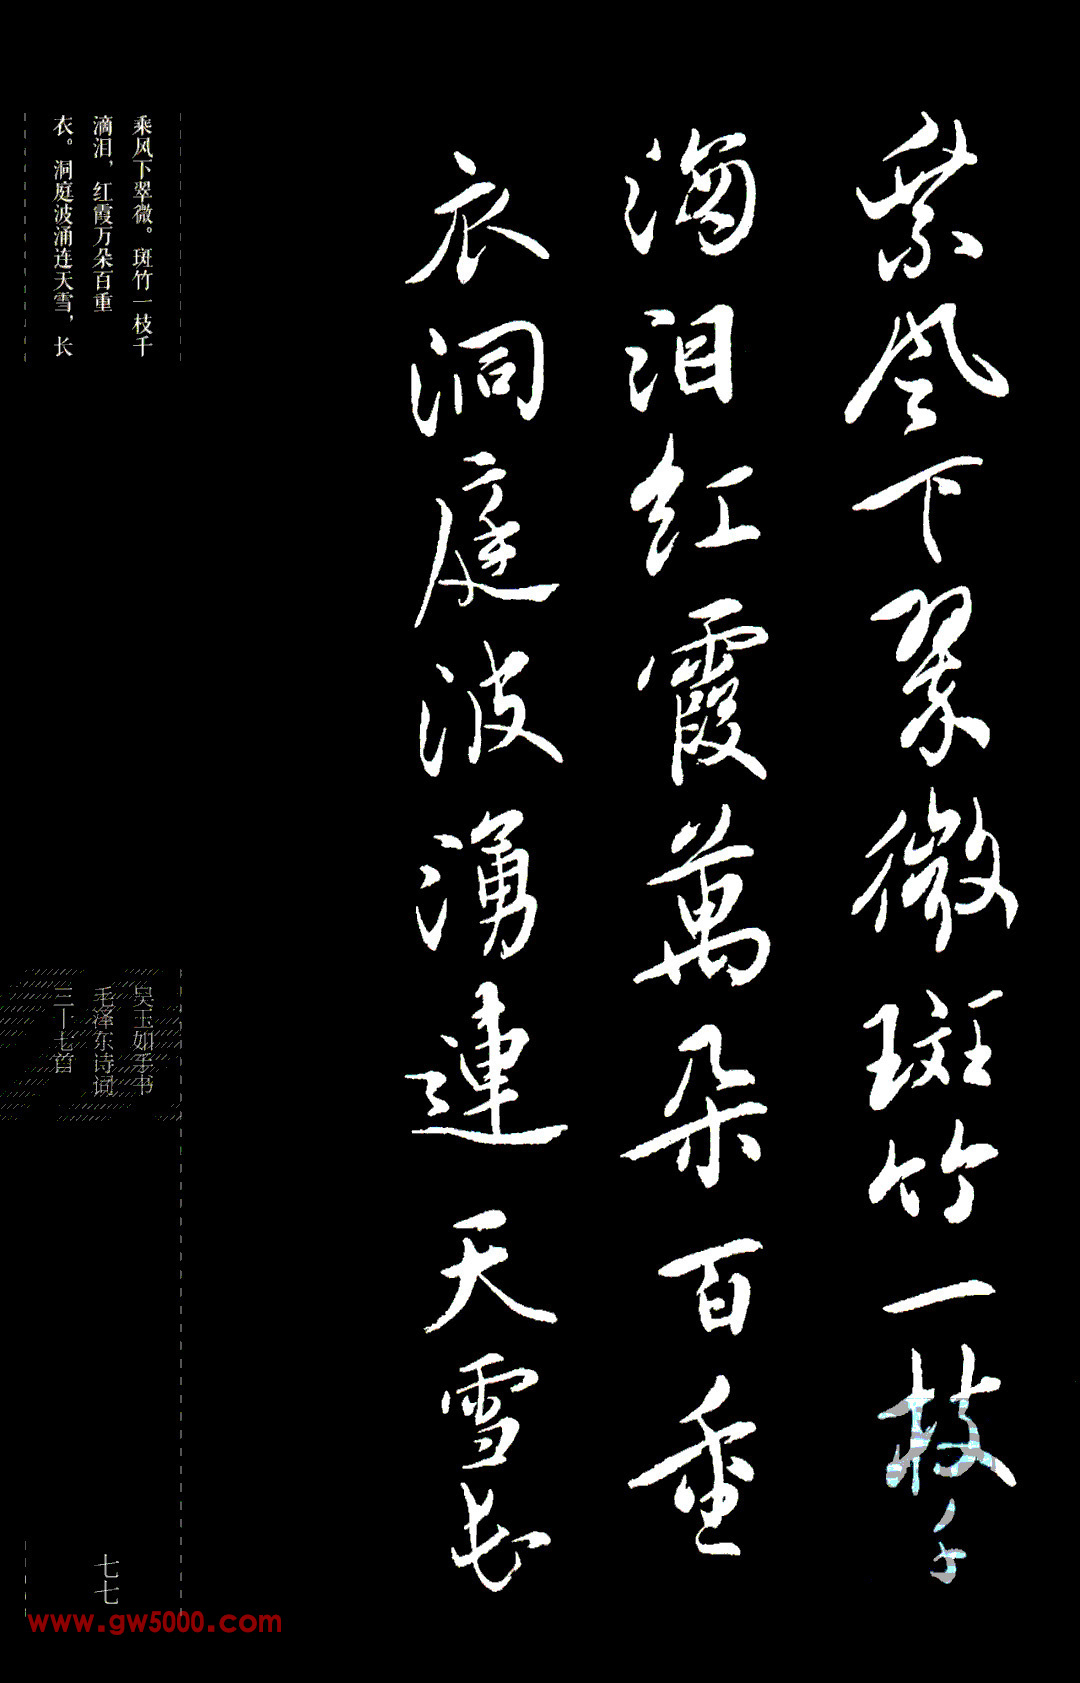 乘風下翠微斑竹一枝千
滴泪红霞萬朵百重
衣洞庭波湧連天雪长
乘风下翠微。斑竹一枝千
滴泪，红霞万朵百重
衣。洞庭波涌连天雪，长
吴玉如手书
毛泽东诗词
三十七首
七七
www.gw5000.com